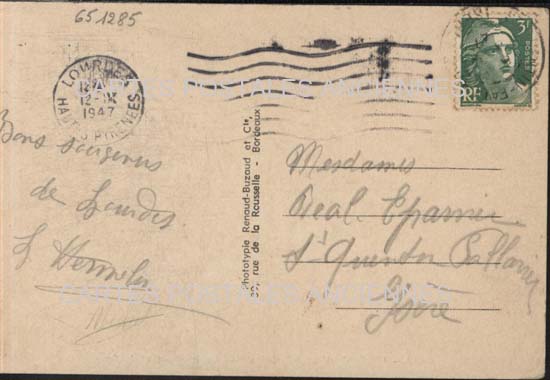 651285
3F
POSTES
RF
LOURDES
12-IX
1947
HAUTES PYRENEES
CARTES POSTALES ANCIENNES
Bons souvenirs
de Lourdes
Phototypie Renaud-Buzaud et Cie,
rue de la Rousselle - Bordeaux
Mesdames
Real Eparvier
St Quentin Fallavier
Isère
CARTES POSTALES ANCIENNES